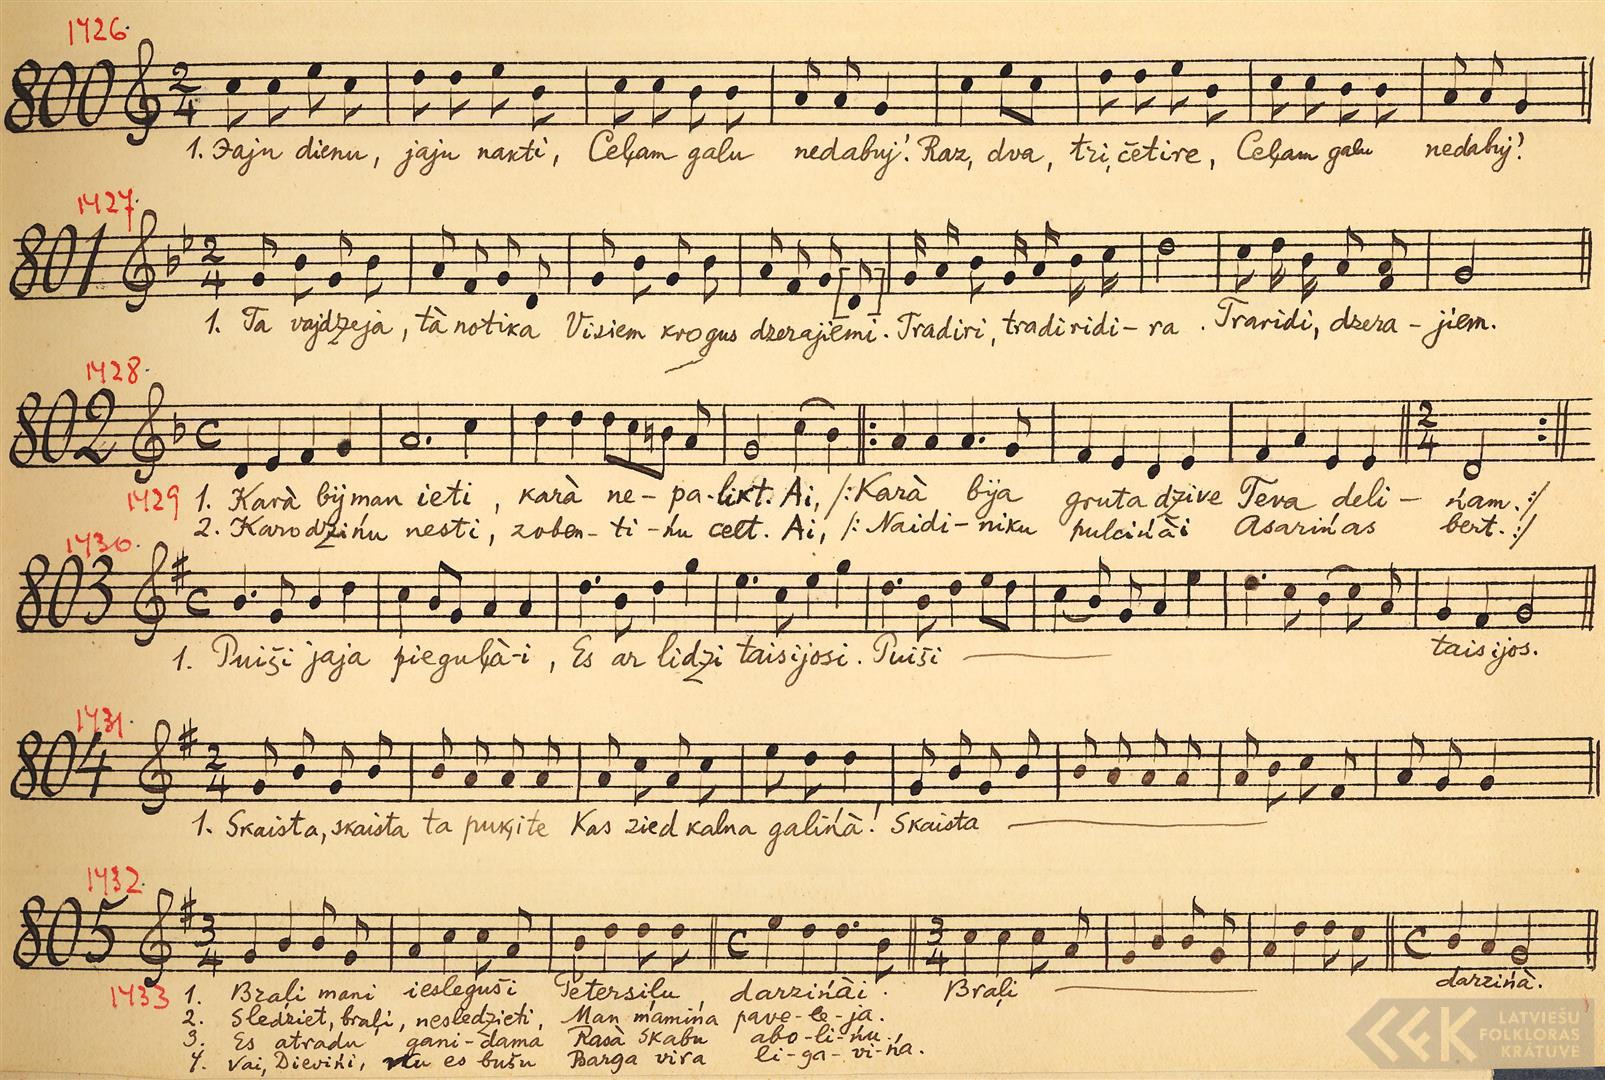 1426.
800 2/4
1. Jaju dienu, jaju nakti, Ceļam galu nedabuj'. Raz, dva, tri, četire, Ceļam galu nedabuj'.
1427.
801 2/4
1. Ta vajdzeja, tà notika Visiem krogus dzerajiemi. Tradiri, tradiridi-ra. Traridi, dzera-jiem.
1428.
802 C 2/4
1429 1. Karà bij man ieti, karà ne-pa-likt. Ai, /: Karà bija gruta dzive Teva deli-ńam. :/
2. Karodzińu nesti, zoben-ti-ńu celt. Ai, /: Naidi-niku pulcińài Asarińas bert. :/
1430
803 C
1. Puiši jaja pieguļà-i, Es ar lidzi taisijosi. Puiši taisijos.
1431.
804 2/4
1. Skaista, skaista ta puķite Kas zied kalna galińà! Skaista
1432.
805 3/4 C 3/4 C
1433 1. Braļi mani iesleguši Petersiļu darzińài. Braļi darzińà.
2. Sledziet, braļi, nesledzieti, Man mamina pave-le-ja.
3. Es atradu gani-dama Rasà skabu abo-li-ńu.
4. Vai, Dievińi, nu es bušu Barga vira li-ga-vi-ńa.
LATVIEŠU
FOLKLORAS
KRĀTUVE